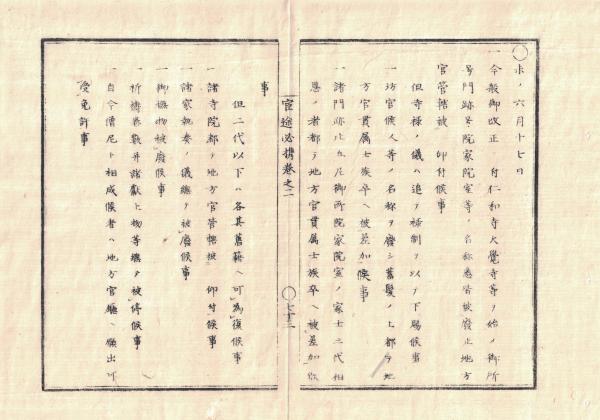 〇未ノ六月十七日
一今般御改正ニ付仁和寺大覺寺等ヲ始メ御所
号門跡号院家院室等ノ名称悉皆被廢止地方
官管轄被 仰付候事
但寺禄ノ儀ハ追テ禄制ヲ以テ下賜候事
一坊官候人等ノ名称ヲ廢シ蓄髪ノ上都テ地
方官貫属士族卒ヘ被差加候事
一諸門跡比丘尼御所院家院室ノ家士二代相
恩ノ者都テ地方官貫属士族卒ヘ被差加候
官途必携巻之二
〇七十二
事
但二代以下ハ各其舊籍ヘ可為復候事
一諸寺院都テ地方官管轄被 仰付候事
一諸家執奏ノ儀總テ被廢候事
一御撫物被廢候事
一祈禱巻數并諸獻上物等總テ被停候事
一自今僧尼ト相成候者ハ地方官廳ヘ願出可
受免許事